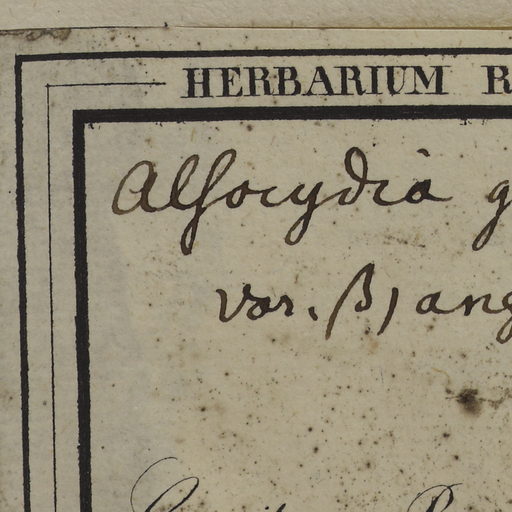 HERBARIUM R
Alsocydia g
var. β) ang